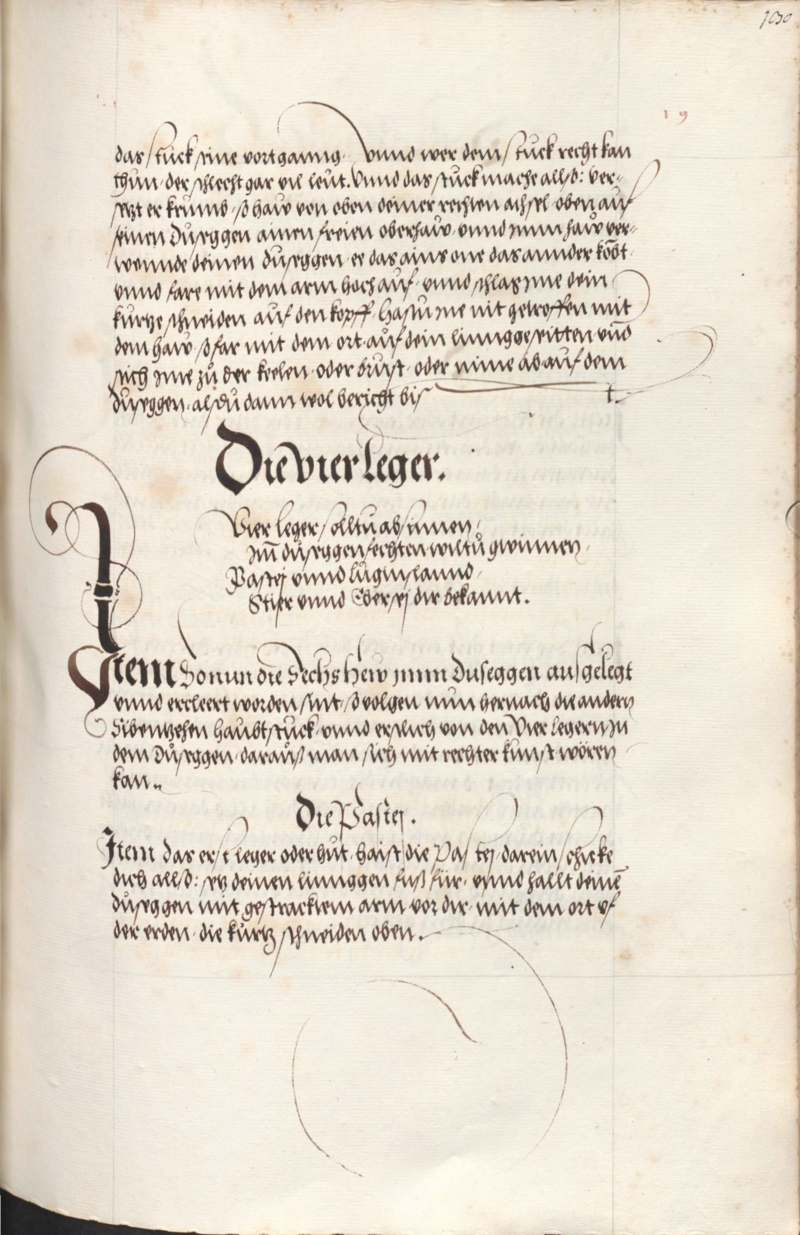 19
das stuck seine vortgannng. vnnd wer dem stuck recht kan
thun. der schlecht gar vil leüt. Vnnd das stuck mache allso: ver-
setzt er krumb. so haw von oben deiner rechten achsel oben auf
seinen Düseggen ainen freien oberhaw. vnnd im haw ver-
wennde deinen düseggen. ee das ains one das annder kombt.
vnnd fare mit dem arm hoch auf. vnnd schlag ime dein
kurtze schneiden auf den kopff. Hastu ine nit getroffen mit
dem haw. so far mit dem ort auf dein linngge seitten vnd
stich ime zu der keelen. oder brust. oder nime ab auf dem
düseggen. als du dann wol bericht bist.
Die vier leger.
Vier leger solltu absinnen.
Im düseggen fechten wiltu gwinnen.
Pastej vnnd luginslannd.
Stier vnnd Eber sej dir bekannt.
Item So nun die Sechs Hew inn Duseggen ausgelegt
vnnd ercleert worden sint. so volgen nun hernach die andern
Sibentzehen haubtstuck. vnnd erstlich von den Vier legern in
dem Düseggen. darauß man sich mit rechter kunst wören
kan.
Die Pastej.
Item das erst leger oder hut. haist die Pastej. darein schicke
dich allso: setz deinen linnggen fuß für. vnnd hallt deinen
düseggen mit gestracktem arm vor dir. mit dem ort vf
der erden. die kurtz schneiden oben.